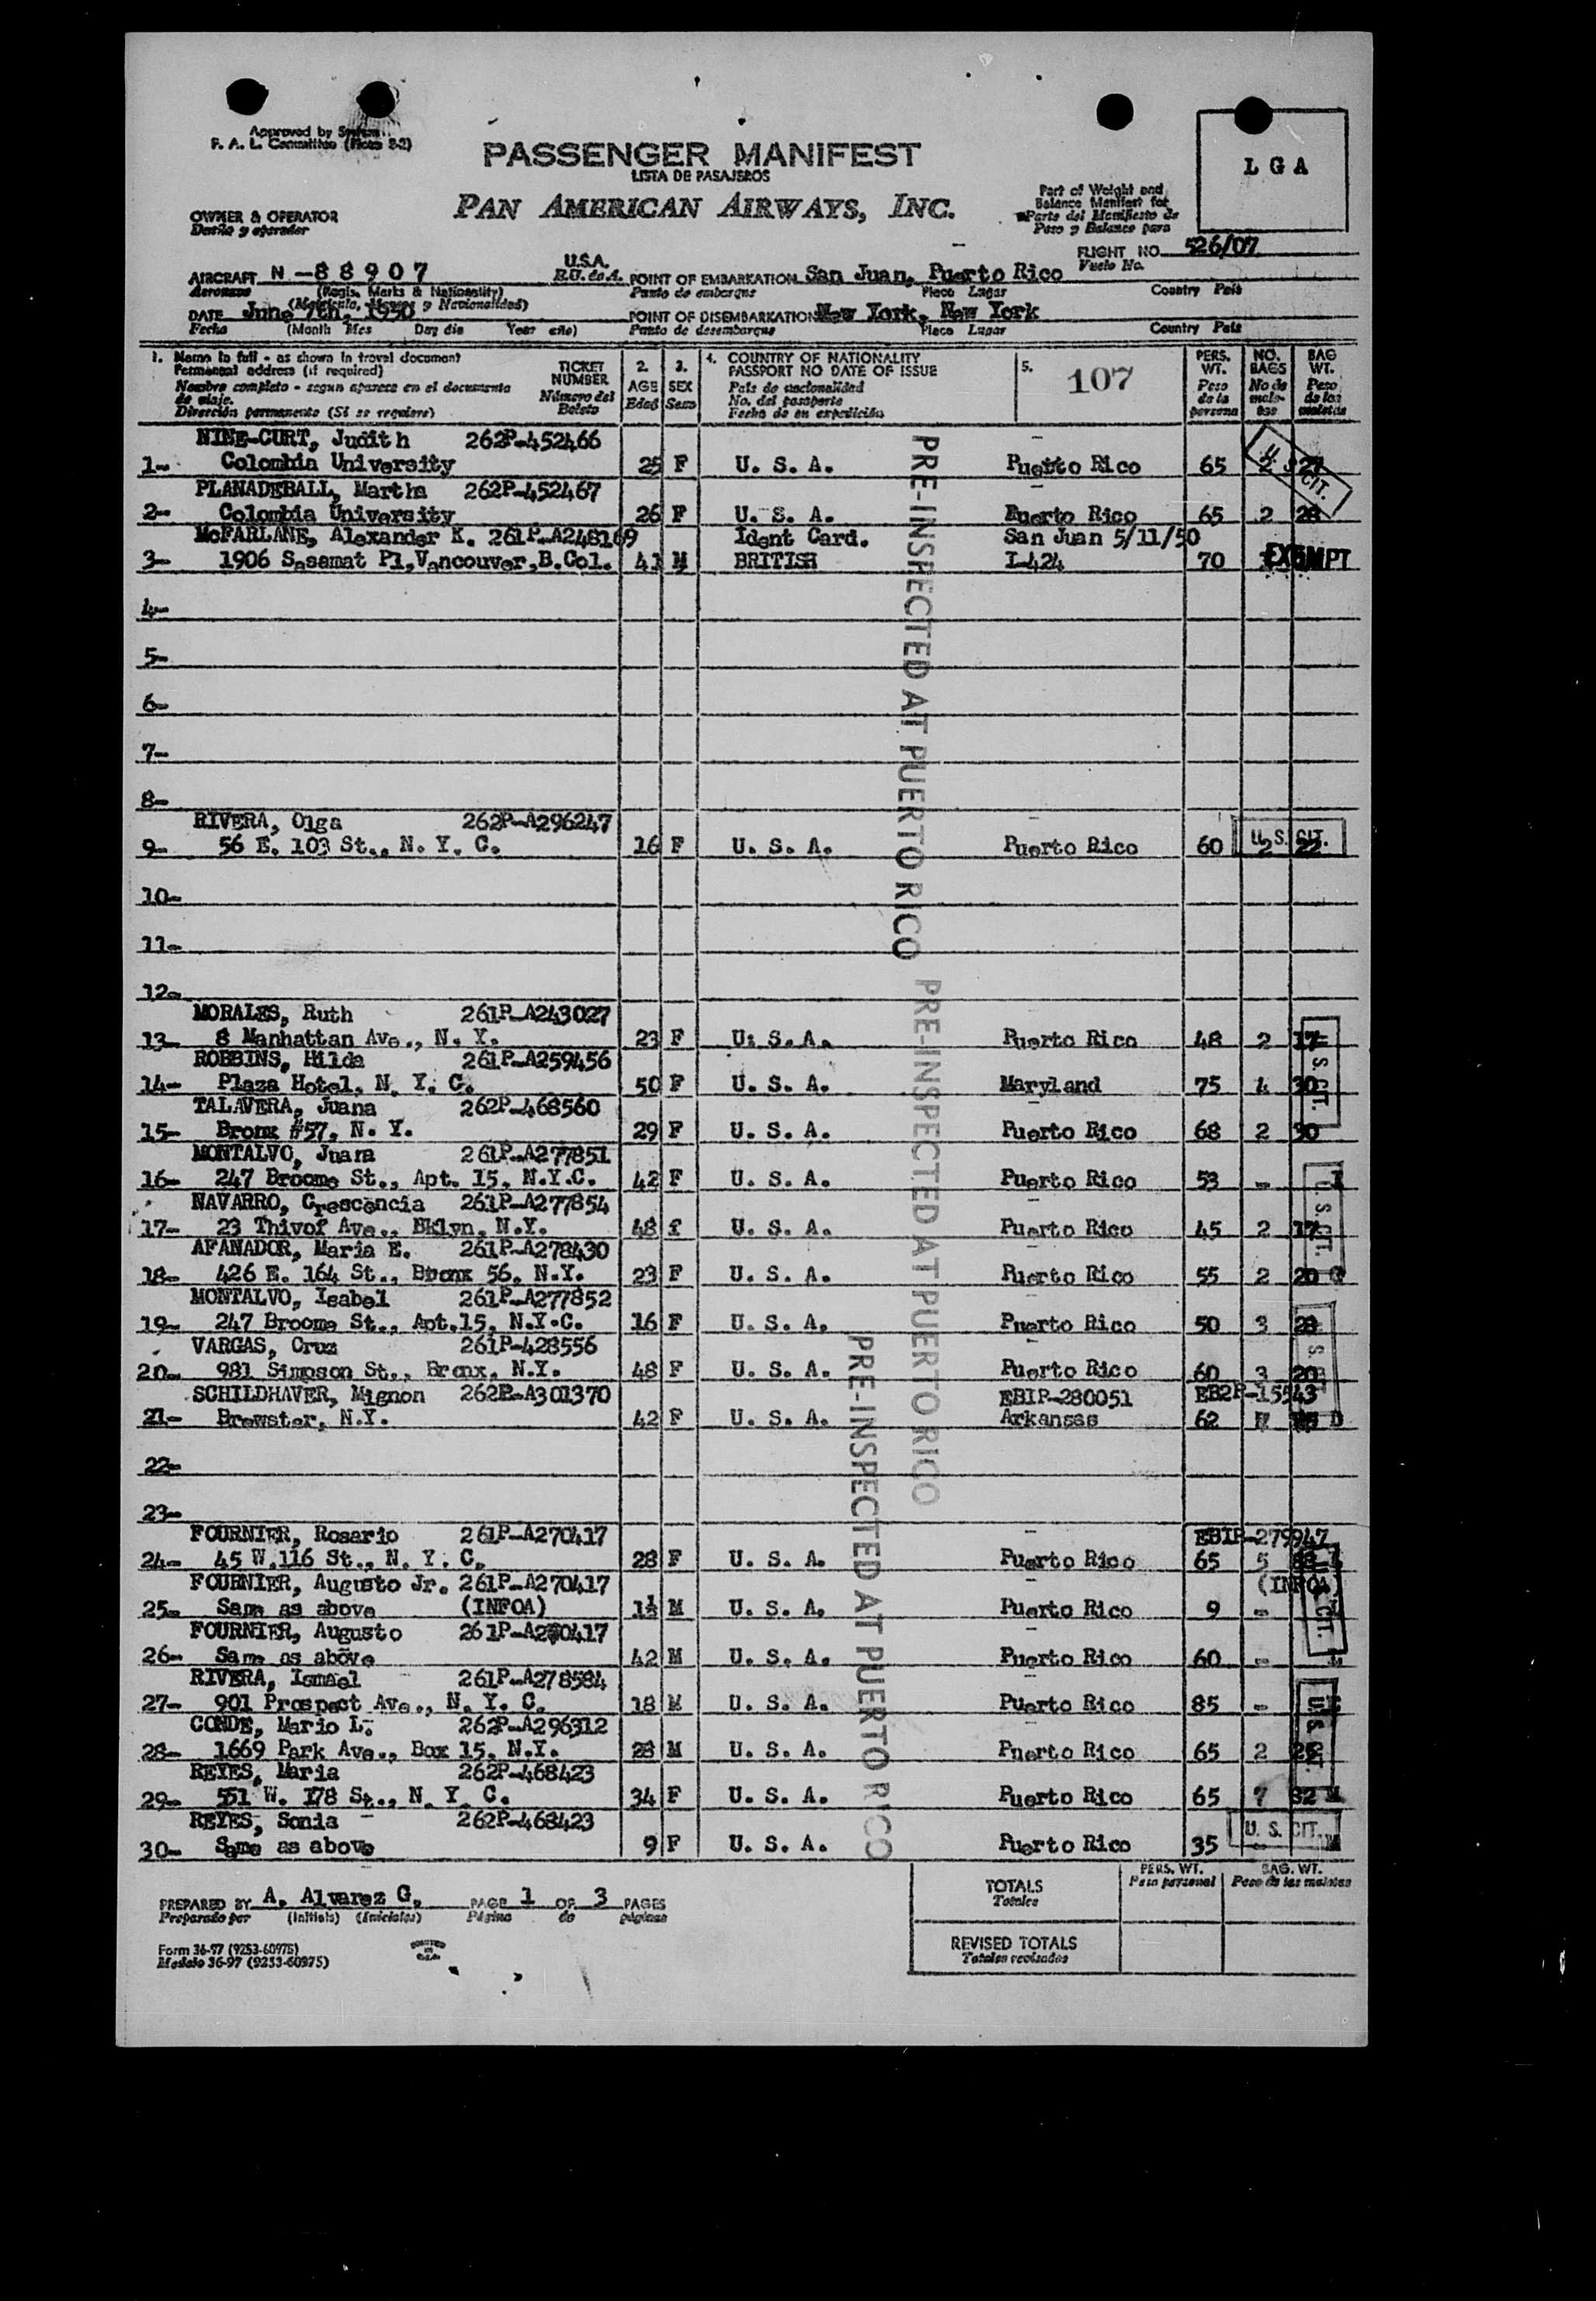 Approved by System
F. A. L. Committee (Nota 8-2)
PASSENGER MANIFEST
LISTA DE PASAJEROS
PAN AMERICAN AIRWAYS, INC.
L G A
Part of Weight and
Balance Manifest for
Parte del Manifiesto de
Peso y Balance para
OWNER & OPERATOR
Dueño y operador
FLIGHT NO. 526/07
Vuelo No.
AIRCRAFT N-88907 U.S.A. POINT OF EMBARKATION San Juan, Puerto Rico
Aeronave (Regis. Marks & Nationality) E.U. de A. Punto de embarque Place Lugar Country País
(Matrícula, Marcas y Nacionalidad)
DATE June 7th, 1950 POINT OF DISEMBARKATION New York, New York
Fecha (Month Mes Day dia Year año) Punto de desembarque Place Lugar Country País
1. Name in full - as shown in travel document
Permanent address (if required)
Nombre completo - segun aparece en el documento
de viaje.
Dirección permanente (Si se requiere)
TICKET
NUMBER
Número del
Boleto
2.
AGE
Edad
3.
SEX
Sexo
4. COUNTRY OF NATIONALITY
PASSPORT NO DATE OF ISSUE
País de nacionalidad
No. del pasaporte
Fecha de su expedición
5. 107
PERS.
WT.
Peso
de la
persona
NO.
BAGS
No de
male-
tas
BAG
WT.
Peso
de las
maletas
NINE-CURT, Judith 262P-452466 -
1- Colombia University 25 F U. S. A. Puerto Rico 65 2 27
U. S. CIT.
PLANADEBALL, Martha 262P-452467 -
2- Colombia University 26 F U. S. A. Puerto Rico 65 2 28
McFARLANE, Alexander K. 261P-A248169 Ident Card. San Juan 5/11/50
3- 1906 Sasamat Pl,Vancouver,B.Col. 41 M BRITISH I-424 70 EXEMPT
4-
5-
6-
7-
8-
RIVERA, Olga 262P-A296247 -
9- 56 E. 103 St., N. Y. C. 16 F U. S. A. Puerto Rico 60 2 22
U. S. CIT.
10-
11-
12-
MORALES, Ruth 261P-A243027
13- 8 Manhattan Ave., N. Y. 23 F U. S. A. Puerto Rico 48 2 17
ROBBINS, Hilda 261P-A259456 -
14- Plaza Hotel, N. Y. C. 50 F U. S. A. Maryland 75 4 30
U. S. CIT.
TALAVERA, Juana 262P-468560 -
15- Bronx #57, N. Y. 29 F U. S. A. Puerto Rico 68 2 30
MONTALVO, Juara 261P-A277851
16- 247 Broome St., Apt. 15, N.Y.C. 42 F U. S. A. Puerto Rico 53 -
NAVARRO, Crescencia 261P-A277854 -
17- 23 Thivof Ave., Bklyn, N.Y. 48 f U. S. A. Puerto Rico 45 2 17
U. S. CIT.
AFANADOR, Maria E. 261P-A278430
18- 426 E. 164 St., Bronx 56, N.Y. 23 F U. S. A. Puerto Rico 55 2 20
MONTALVO, Isabel 261P-A277852
19- 247 Broome St., Apt.15, N.Y.C. 16 F U. S. A. Puerto Rico 50 3 28
VARGAS, Cruz 261P-428556 -
20- 981 Simpson St., Bronx, N.Y. 48 F U. S. A. Puerto Rico 60 3 20
SCHILDHAVER, Mignon 262P-A301370 EBIP-280051 EB2P-15543
21- Brewster, N.Y. 42 F U. S. A. Arkansas 62
22-
23-
FOURNIER, Rosario 261P-A270417 - EBIP-279947
24- 45 W.116 St., N. Y. C. 28 F U. S. A. Puerto Rico 65 5
FOURNIER, Augusto Jr. 261P-A270417 - (INFOA)
25- Same as above (INFOA) 1½ M U. S. A. Puerto Rico 9 -
FOURNIER, Augusto 261P-A270417 -
26- Same as above 42 M U. S. A. Puerto Rico 60 -
RIVERA, Ismael 261P-A278584 -
27- 901 Prospect Ave., N. Y. C. 18 M U. S. A. Puerto Rico 85 -
CONDE, Mario L. 262P-A296312 -
28- 1669 Park Ave., Box 15, N.Y. 28 M U. S. A. Puerto Rico 65 2 25
U. S. CIT.
REYES, Maria 262P-468423 -
29- 551 W. 178 St., N. Y. C. 34 F U. S. A. Puerto Rico 65 7 32
REYES, Sonia 262P-468423 -
30- Same as above 9 F U. S. A. Puerto Rico 35 -
U. S. CIT.
PRE-INSPECTED AT PUERTO RICO
PRE-INSPECTED AT PUERTO RICO
PRE-INSPECTED AT PUERTO RICO
PREPARED BY A. Alvarez G. PAGE 1 OF 3 PAGES
Preparado por (Initials) (Iniciales) Página de páginas
TOTALS
Totales
PERS. WT.
Peso personal
BAG. WT.
Peso de las maletas
REVISED TOTALS
Totales revisados
Form 36-97 (9253-60975)
Modelo 36-97 (9253-60975)